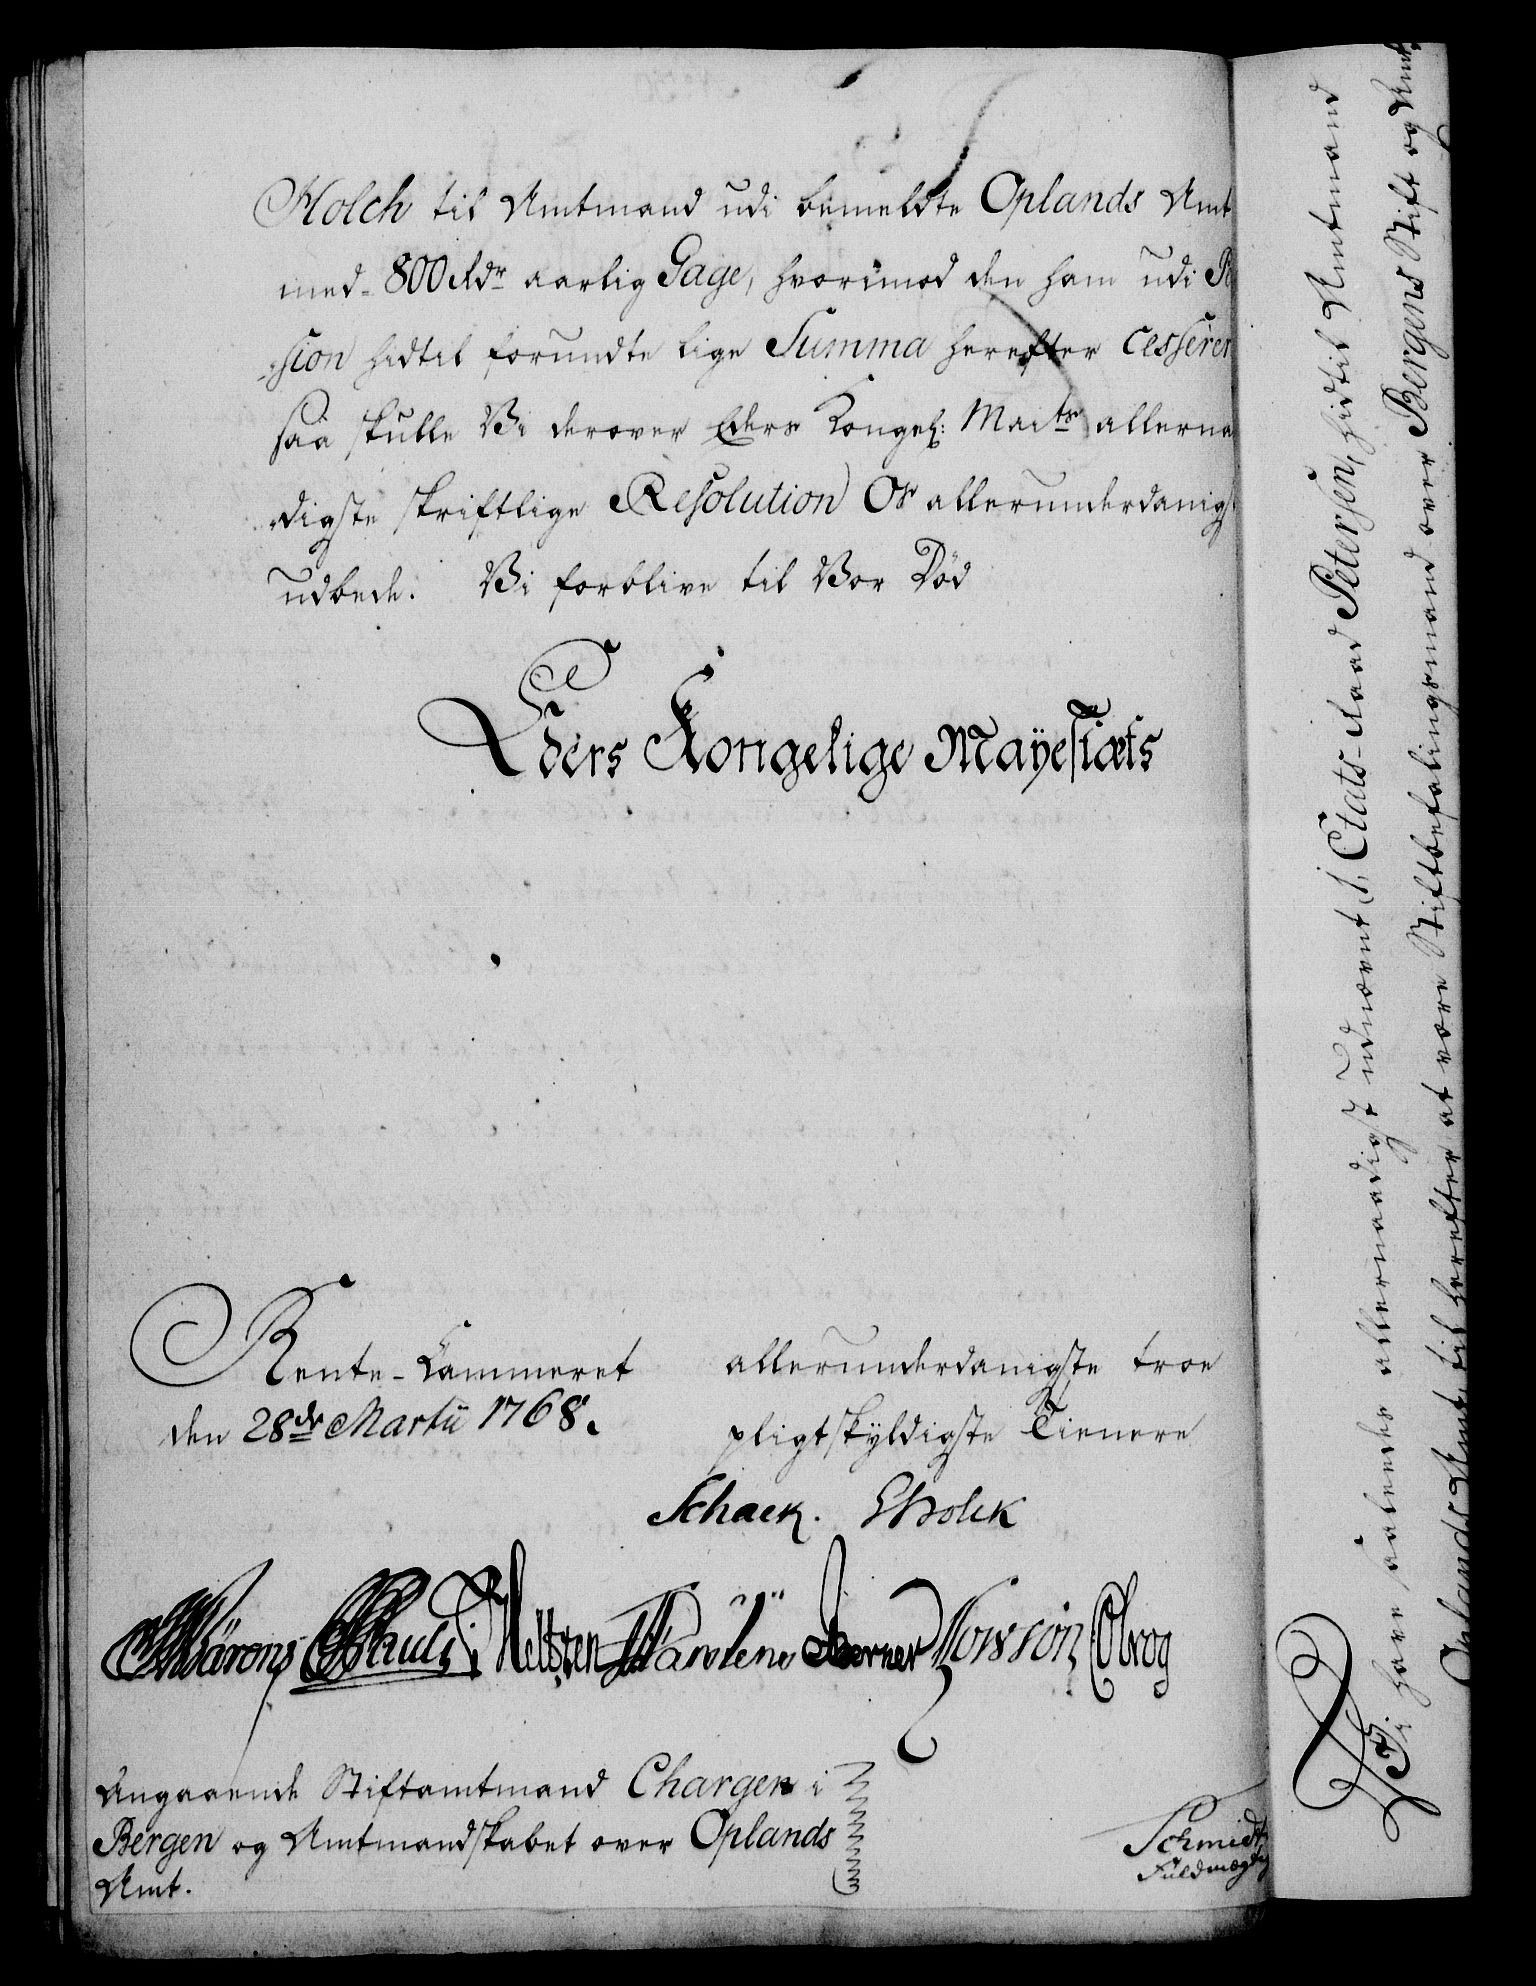 Holch til Amtmand udi bemeldte Oplands Amt
med 800 Rdr aarlig Gage, hvorimod den ham udi
sion hidtil forundte lige Summa herefter Cesserer
saa skulle Vi derover Eders Kongel: Maits allerna
digste skriftlige Resolution Os allerunderdanigst
udbede. Vi forblive til Vor Död
Eders Kongelige Mayestæts
Rente-Cammeret
den 28de Martii 1768.
allerunderdanigste troe
pligtskyldigste Tienere
Schack. Holck
Heltzen Berner Obrog
Angaaende Stiftamtmand Chargen i
Bergen og Amtmandskabet over Oplands
Amt.
Schmidt
Fuldmægtig
Vi have saaledes allernaadigst udnævnt, Etats-Raad Petersen, hidtil Amtmand
Oplands Amt, til herefter at være Stiftbefalingsmand over Bergens Stift og Amt